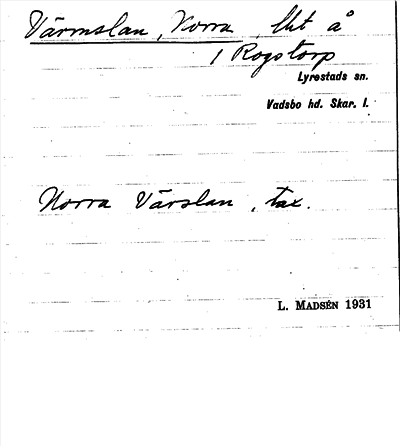 Värmslan, Norra, lht å
1 Rogstorp
Lyrestads sn.
Vadsbo hd. Skar. l.
Norra Värslan, tax.
L. MADSÉN 1931